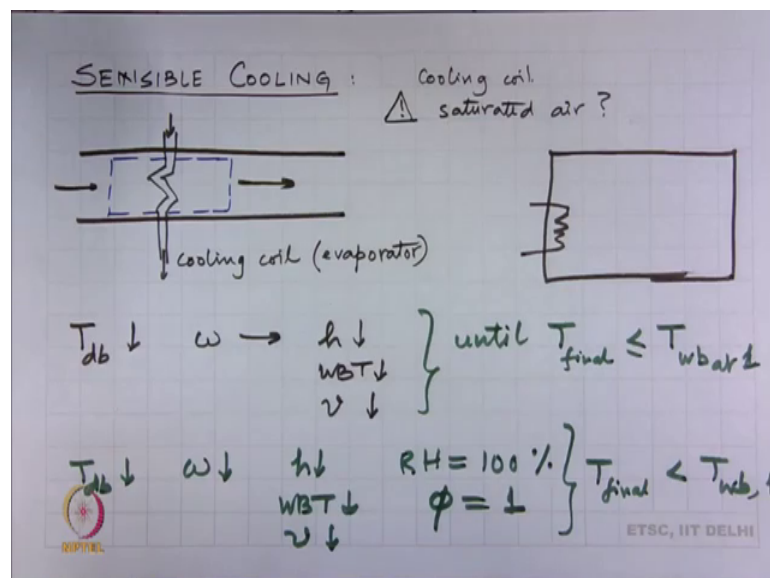 SENSIBLE COOLING :
cooling coil
⚠ saturated air ?
cooling coil (evaporator)
T db ↓ ω → h ↓ } until T final ≤ T wb at 1
WBT ↓
v ↓
T db ↓ ω ↓ h ↓ RH = 100 % } T final < T wb,
WBT ↓ φ = 1
v ↓
NPTEL
ETSC, IIT DELHI